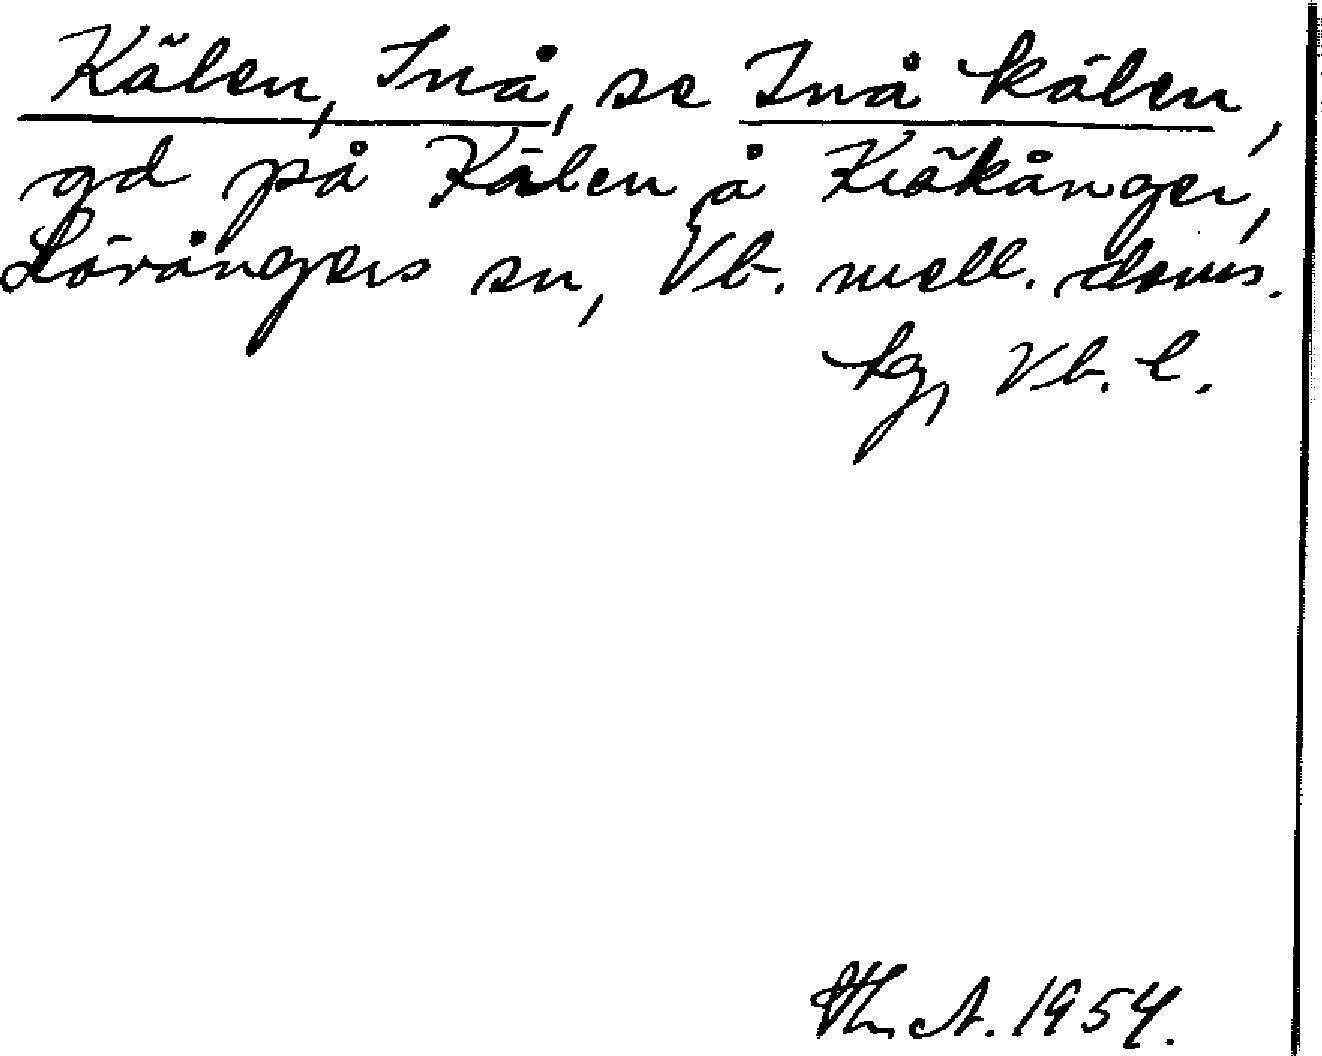 Kälen, Inå, se Inå kälen,
gd på Kälen å Kräkånger,
Lövångers sn, Vb. mell. doms.
tg, Vb. l.
Th. A. 1954.